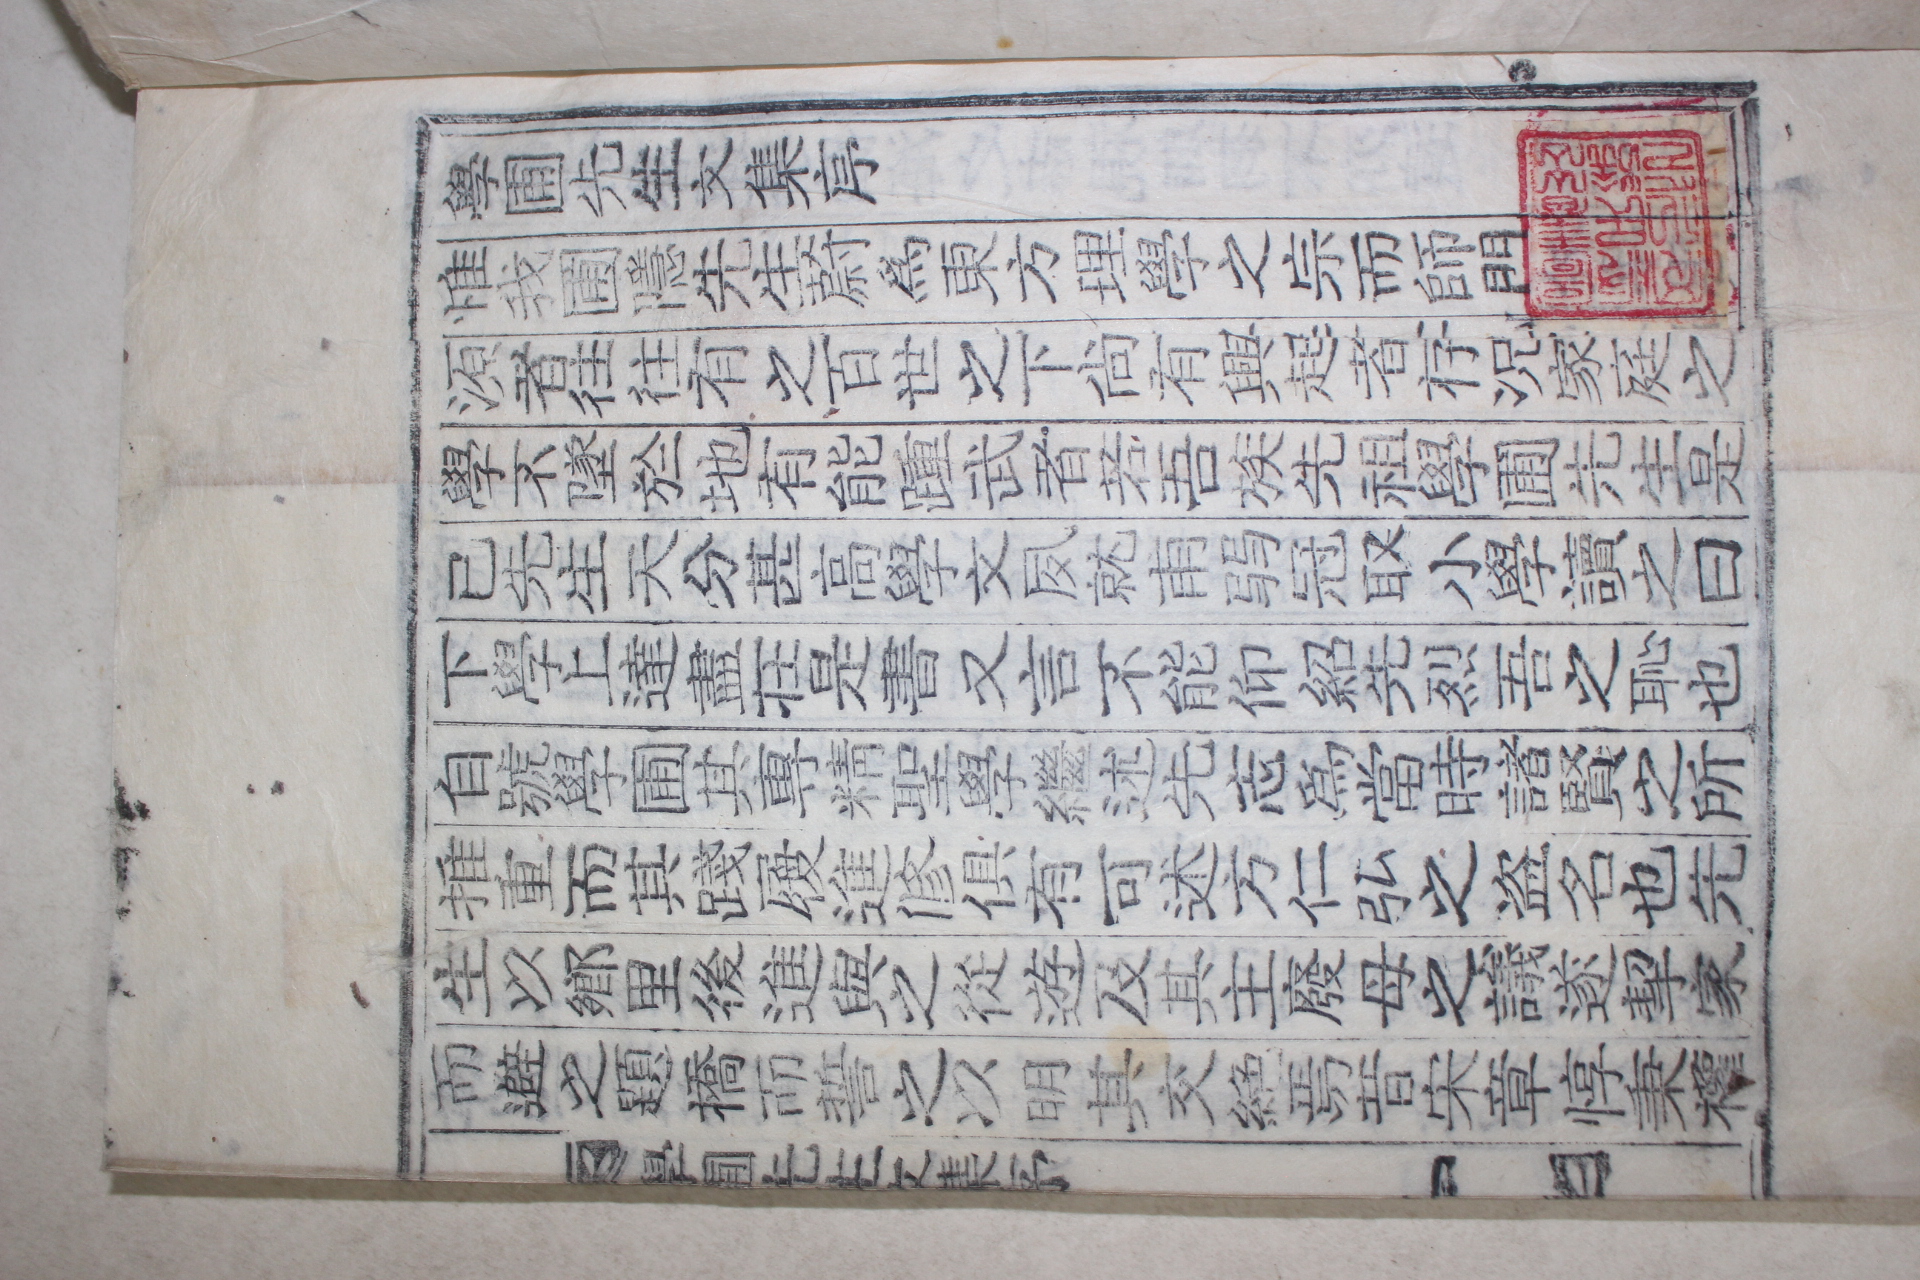 學圃先生文集序
惟我圃隱先生蔚爲東方理學之宗而師門
源者往往有之百世之下尙有興起者存况家庭之
學不墜於地有能踵武者若吾族先祖學圃先生是
已先生天分甚高學文夙就甫弱冠取小學讀之曰
下學上達盡在是書又言不能仰紹先烈吾之恥也
自號學圃其專精聖學繼述先志爲當時諸賢之所
推重而其踐履進修俱有可述方仁弘之盜名也先
生以鄉里後進與之從遊及其主廢母之議遂挈家
而避之題橋而誓之以明其交絶焉昔宋章惇秉權
學圃先生文集序